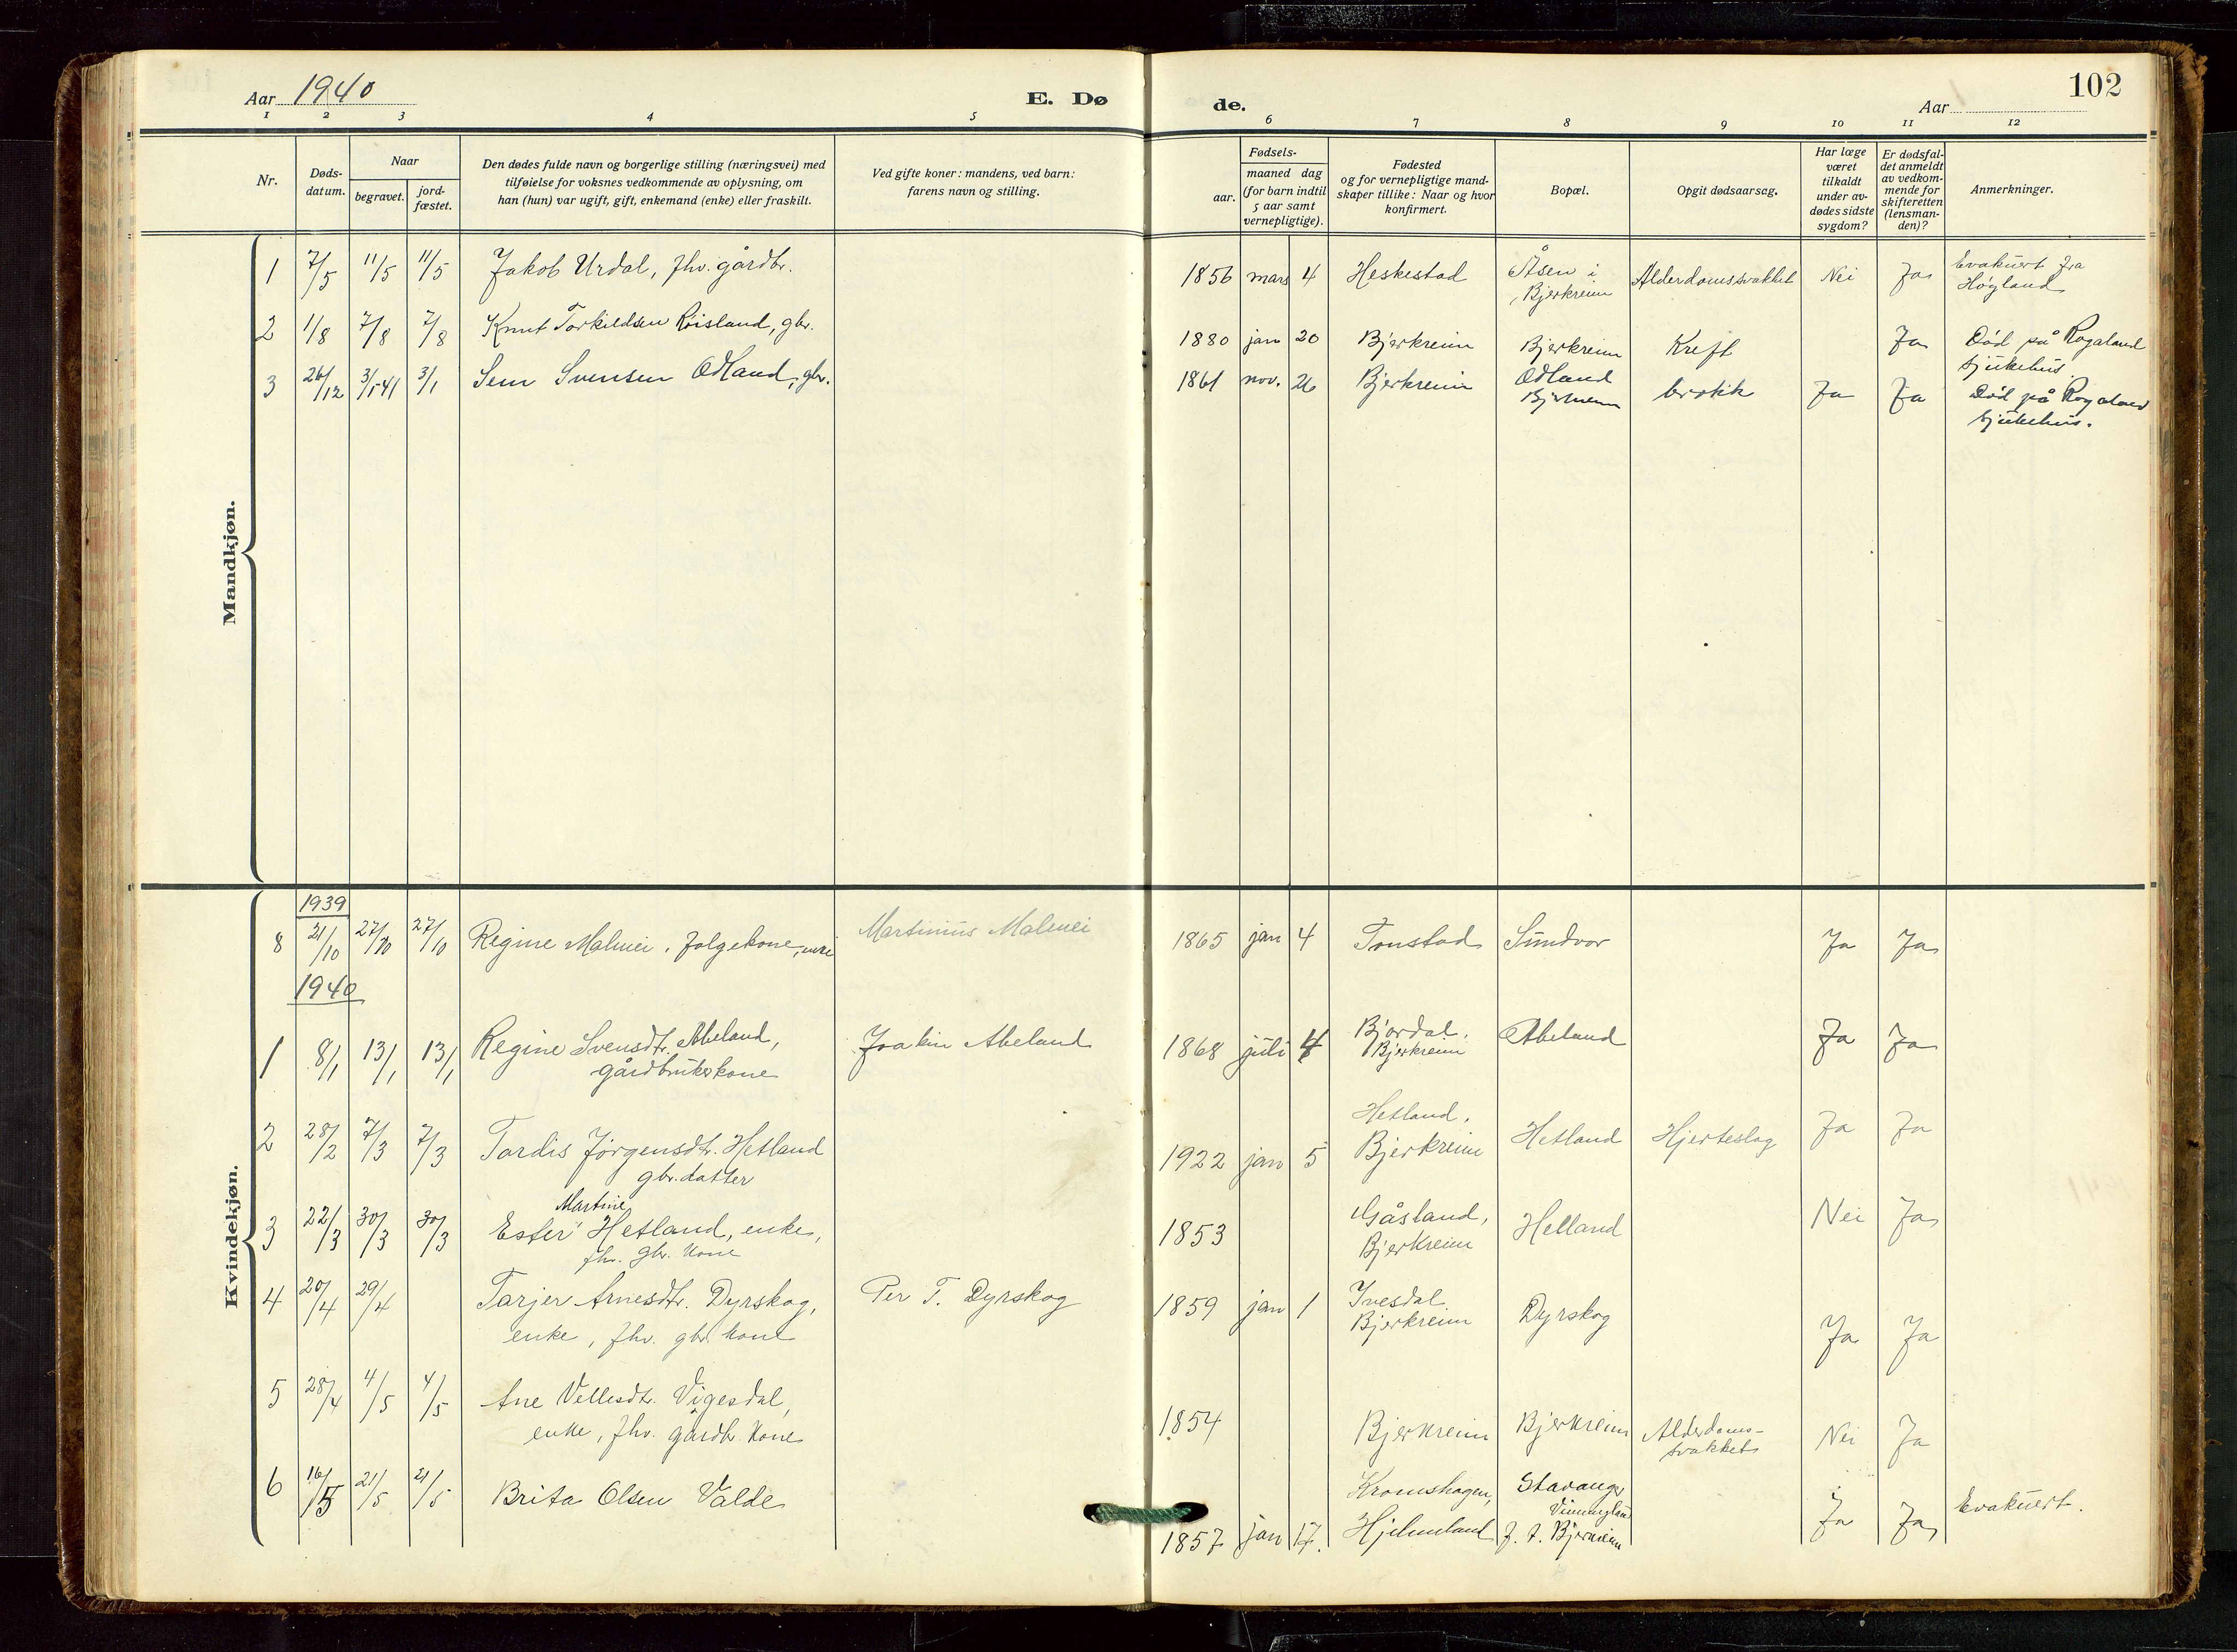 Aar 1940
E. Dø
de.
102
Aar
1 2 3 4 5 6 7 8 9 10 11 12
Nr.
Døds-
datum.
Naar
begravet.
jord-
fæstet.
Den dødes fulde navn og borgerlige stilling (næringsvei) med
tilføielse for voksnes vedkommende av oplysning, om
han (hun) var ugift, gift, enkemand (enke) eller fraskilt.
Ved gifte koner: mandens, ved barn:
farens navn og stilling.
Fødsels-
aar.
maaned dag
(for barn indtil
5 aar samt
vernepligtige).
Fødested
og for vernepligtige mand-
skaper tillike: Naar og hvor
konfirmert.
Bopæl.
Opgit dødsaarsag.
Har læge
været
tilkaldt
under av-
dødes sidste
sygdom?
Er dødsfal-
det anmeldt
av vedkom-
mende for
skifteretten
(lensman-
den)?
Anmerkninger.
Mandkjøn.
1 7/5 11/5 11/5 Jakob Urdal, fhv. gårdbr. 1856 mars 4 Heskestad Åsen i Alderdomssvakhet Nei Ja Evakuert fra
Bjerkreim Høyland
2 1/8 7/8 7/8 Knut Torkildsen Røisland, gbr. 1880 jan 20 Bjerkreim Bjerkreim Kreft Ja Død på Rogaland
sjukehus.
3 26/12 3/1 41 3/1 Sem Svensen Odland, gbr. 1861 nov. 26 Bjerkreim Odland brokk Ja Ja Død på Rogaland
Bjerkreim sjukehus.
Kvindekjøn.
1939
8 21/10 27/10 27/10 Regine Malmei, folgekone, Martinius Malmei 1865 jan 4 Tonstad Sundvor Ja Ja
1940
1 8/1 13/1 13/1 Regine Svensdtr. Abeland, Joakim Abeland 1868 juli 4 Bjordal, Abeland Ja Ja
gårdbrukerkone Bjerkreim
2 28/2 7/3 7/3 Tordis Jørgensdtr. Hetland 1922 jan 5 Hetland, Hetland Hjerteslag Ja Ja
gbr. datter Bjerkreim
Martine
3 22/3 30/3 30/3 Ester Hetland, enke, 1853 Gåsland, Helland Nei Ja
fhv. gbr. kone Bjerkreim
4 20/4 29/4 Tarjer Arnesdtr. Dyrskog, Per T. Dyrskog 1859 jan 1 Ivesdal Dyrskog Ja Ja
enke, fhv. gbr. kone Bjerkreim
5 28/4 4/5 4/5 Ane Vellesdtr. Vigesdal, 1854 Bjerkreim Bjerkreim Alderdoms- Nei Ja
enke, fhv. gårdbr. kone svakhet
6 16/5 21/5 21/5 Brita Olsen Valde 1857 jan 17. Kromshagen, Stavanger Ja Ja Evakuert.
Hjelmeland f. t. Bjerkreim